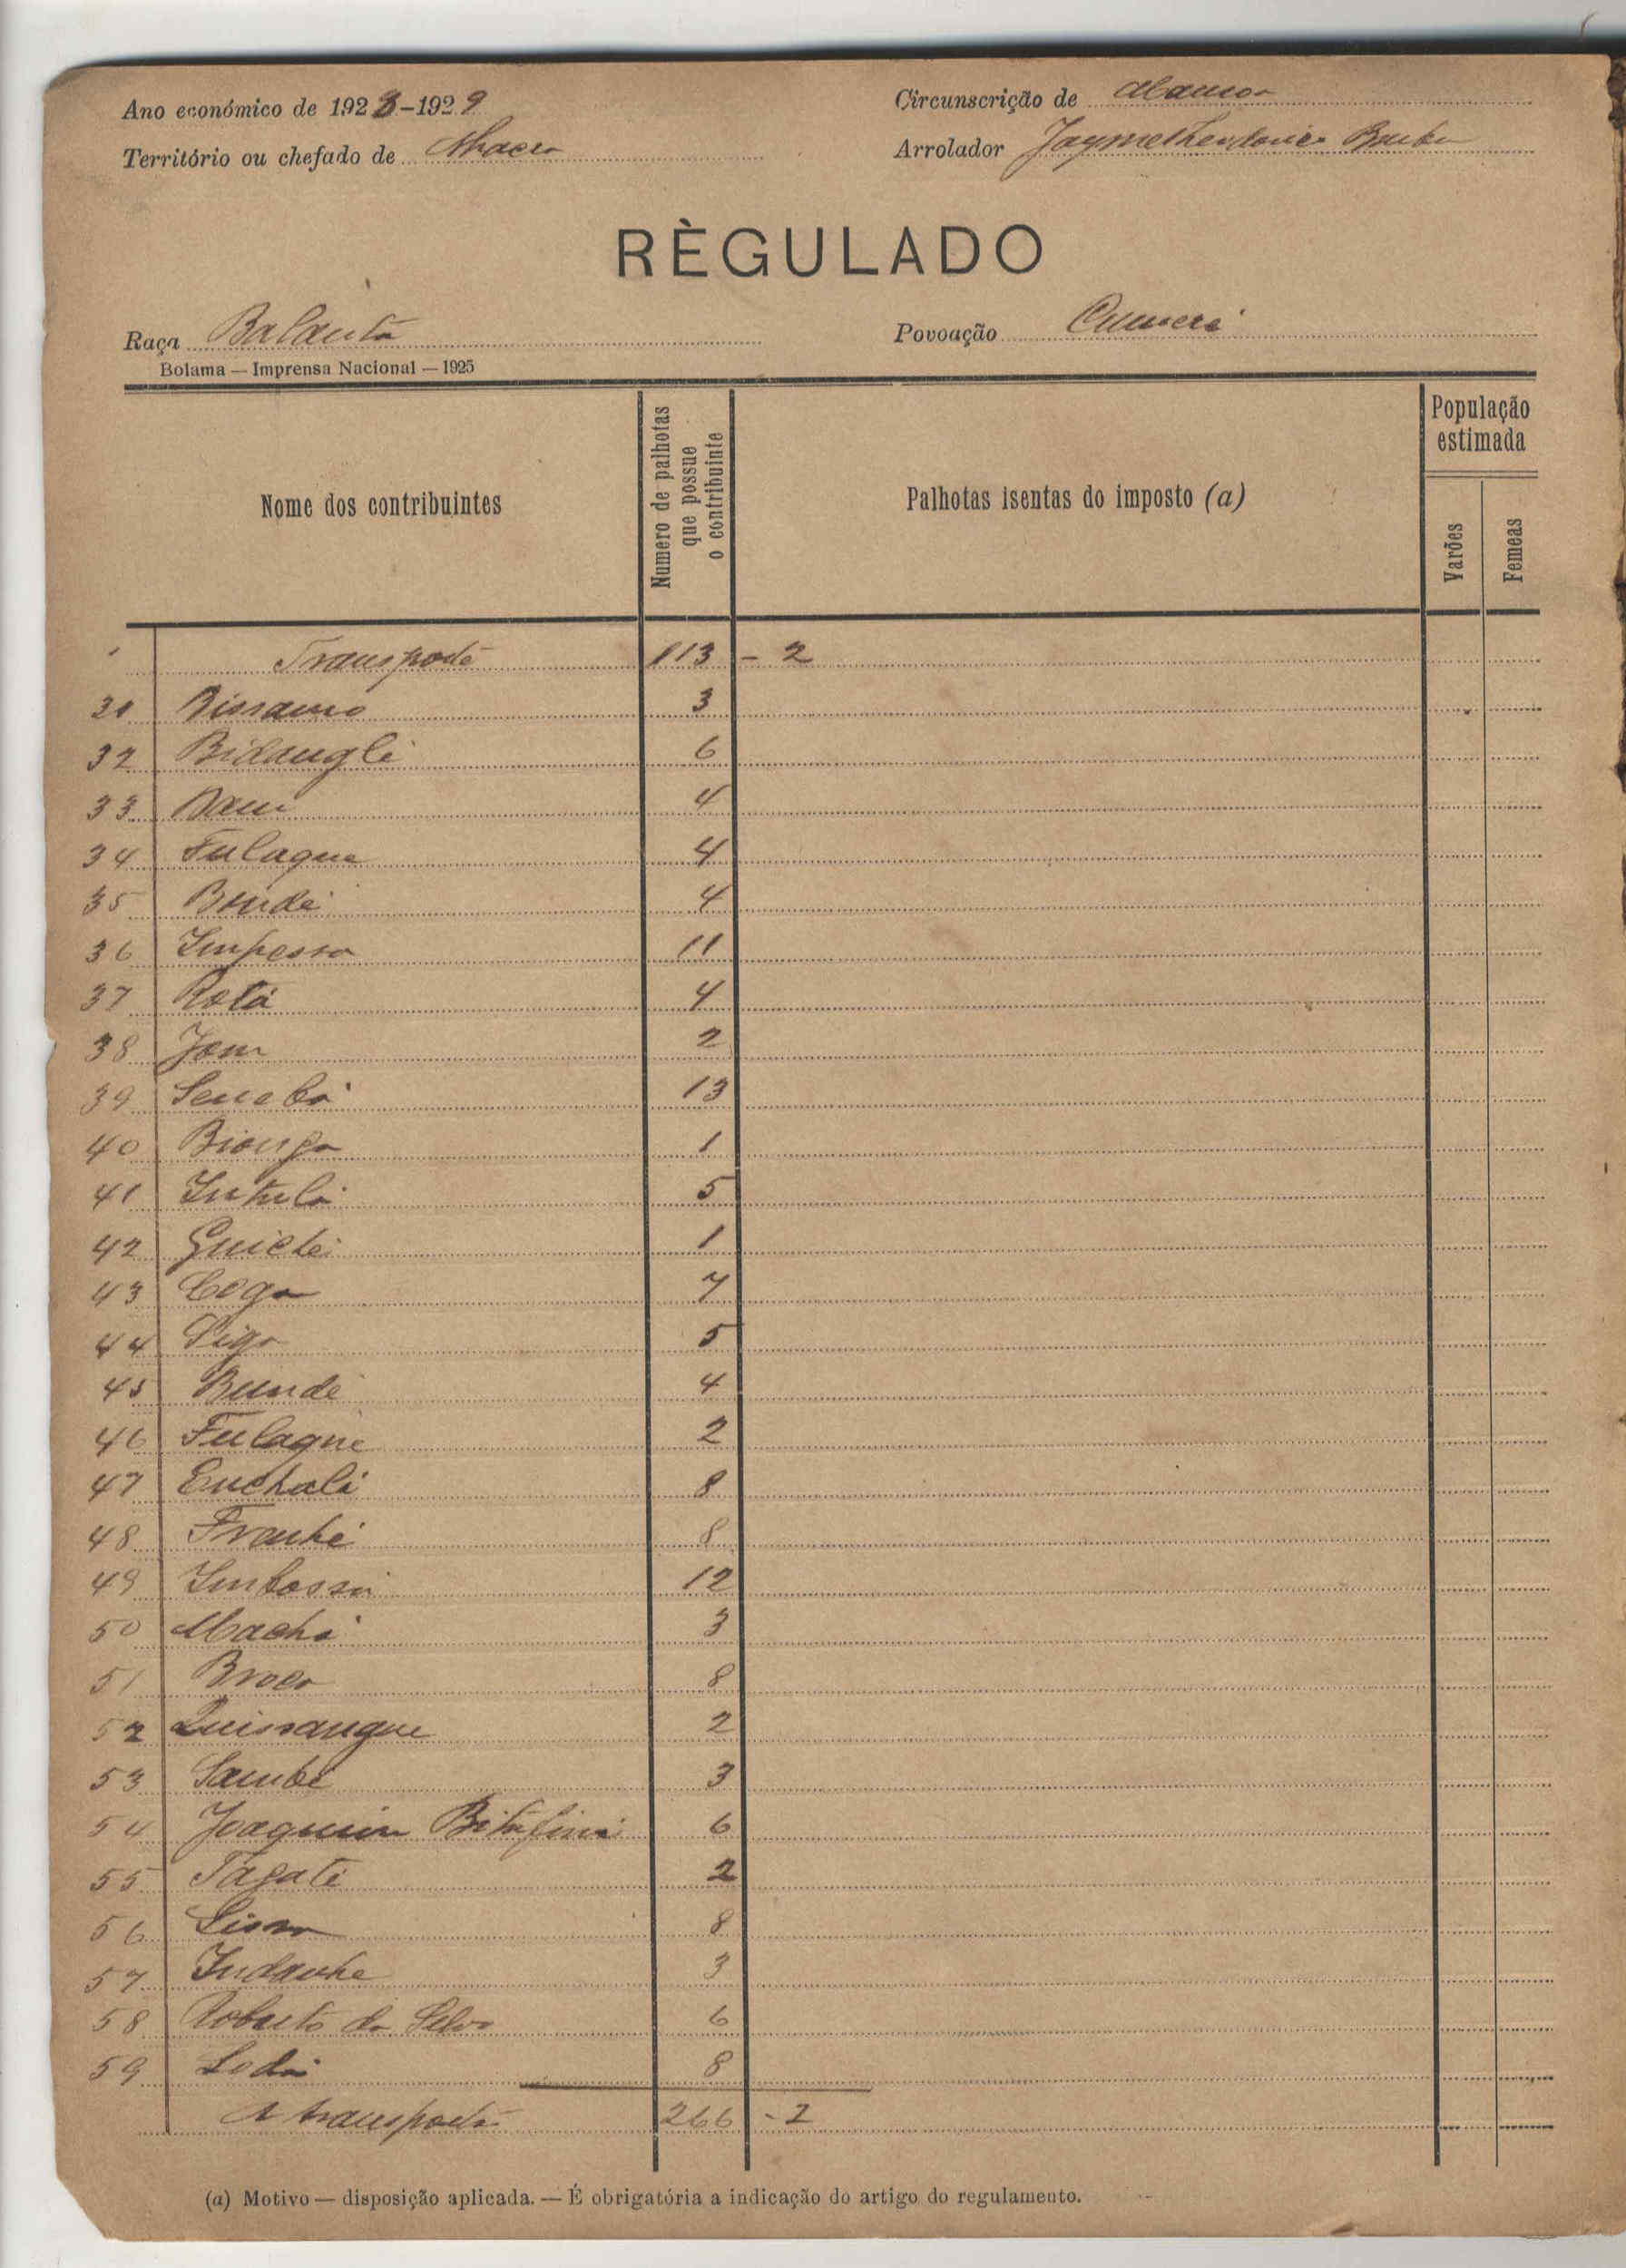 Ano económico de 1928-1929
Circunscrição de Mansoa
Território ou chefado de Nhacra
Arrolador Jayme
RÈGULADO
Raça Balanta
Povoação Cumeré
Bolama — Imprensa Nacional — 1925
Nome dos contribuintes
Numero de palhotas que possue o contribuinte
Palhotas isentas do imposto (a)
População estimada
Varões
Femeas
Transporte 113 - 2
31 Bissauro 3
32 Bidangli 6
33 4
34 Fulaque 4
35 Bindé 4
36 Impessa 11
37 Rotá 4
38 Jom 2
39 13
40 Bionga 1
41 Intula 5
42 Guiché 1
43 Coga 7
44 5
45 Bundé 4
46 Fulaque 2
47 Enchalá 8
48 8
49 Imbossi 12
50 Machá 3
51 Broco 8
52 Quissangue 2
53 Sambé 3
54 Joaquim 6
55 2
56 8
57 3
58 Roberto da Silva 6
59 Lodá 8
A transportar 266 - 2
(a) Motivo — disposição aplicada. — É obrigatória a indicação do artigo do regulamento.